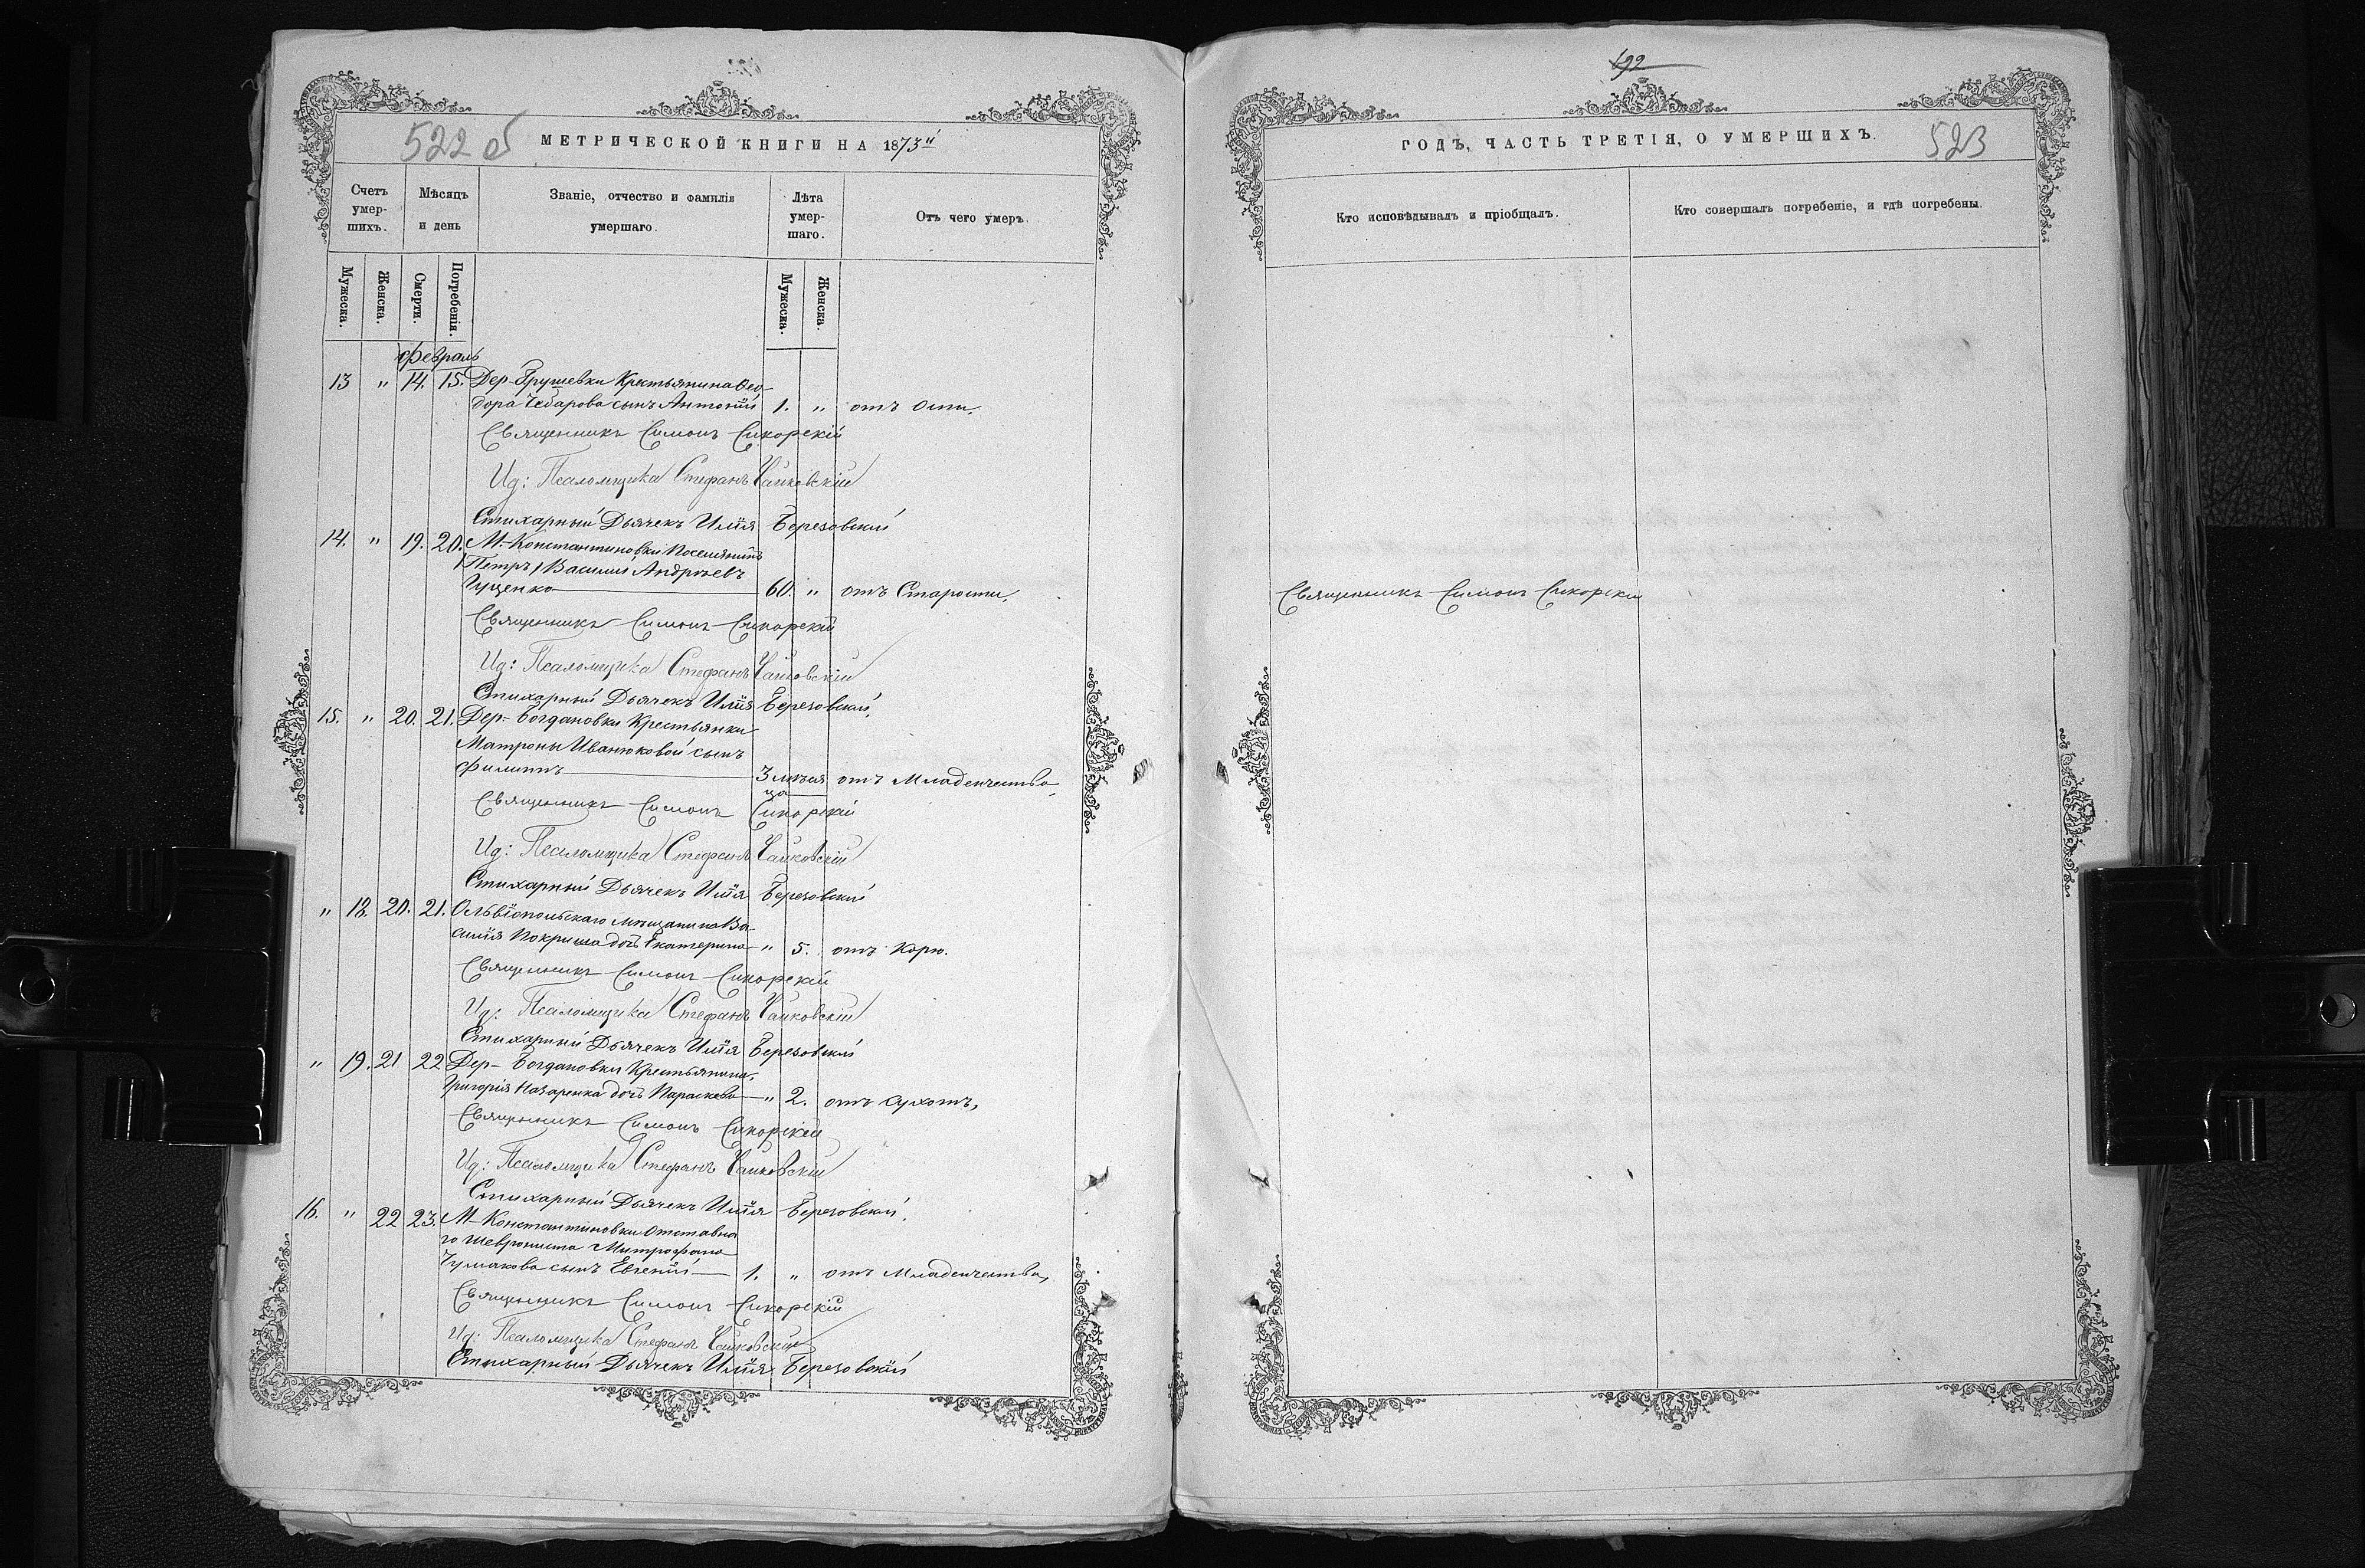 522 об
МЕТРИЧЕСКОЙ КНИГИ НА 1873й
Счетъ умер-шихъ.
Мѣсяцъ и день
Званіе, отчество и фамилія умершаго.
Лѣта умер-шаго.
Отъ чего умеръ.
Мужеска.
Женска.
Смерти.
Погребенія.
Мужеска.
Женска.
Февраль
13 " 14. 15. Дер-Грушевки Крестьянина Ѳео-
дора Чебарова сынъ Антоній 1. " отъ Оспи.
Священникъ Симонъ Сикорскій
Ид: Псаломщика Стефанъ Чайковскій
Стихарный Дьячекъ Илія Березовскій
14. " 19. 20. М-Константиновки Поселянинъ
(Петръ) Василій Андреевъ
Гуценко 60. " отъ Старости.
Священникъ Симонъ Сикорскій
Ид: Псаломщика Стефанъ Чайковскій
Стихарный Дьячекъ Илія Березовскій.
15. " 20. 21. Дер-Богдановки Крестьянки
Матроны Иванюковой сынъ
Филиппъ 3 мѣся
ца отъ Младенчества,
Священникъ Симонъ Сикорскій
Ид: Псаломщика Стефанъ Чайковскій
Стихарный Дьячекъ Илія Березовскій
" 18. 20. 21. Ольвіопольскаго мѣщанина Ва-
силія Покриша дочь Екатерина " 5. отъ Корю.
Священникъ Симонъ Сикорскій
Ид: Псаломщика Стефанъ Чайковскій
Стихарный Дьячекъ Илія Березовскій
" 19. 21 22 Дер-Богдановки Крестьянина
Григорія Назаренка дочь Параскева " 2. отъ Сухотъ,
Священникъ Симонъ Сикорскій
Ид: Псаломщика Стефанъ Чайковскій
Стихарный Дьячекъ Илія Березовскій.
16. " 22 23. М-Константиновки Отставна
го Шеврониста Митрофана
Чумакова сынъ Евгеній 1. " отъ Младенчества,
Священникъ Симонъ Сикорскій
Ид: Псаломщика Стефанъ Чайковскій
Стихарный Дьячекъ Илія Березовскій
192
ГОДЪ, ЧАСТЬ ТРЕТІЯ, О УМЕРШИХЪ.
523
Кто исповѣдывалъ и пріобщалъ.
Кто совершалъ погребеніе, и гдѣ погребены.
Священникъ Симонъ Сикорскій